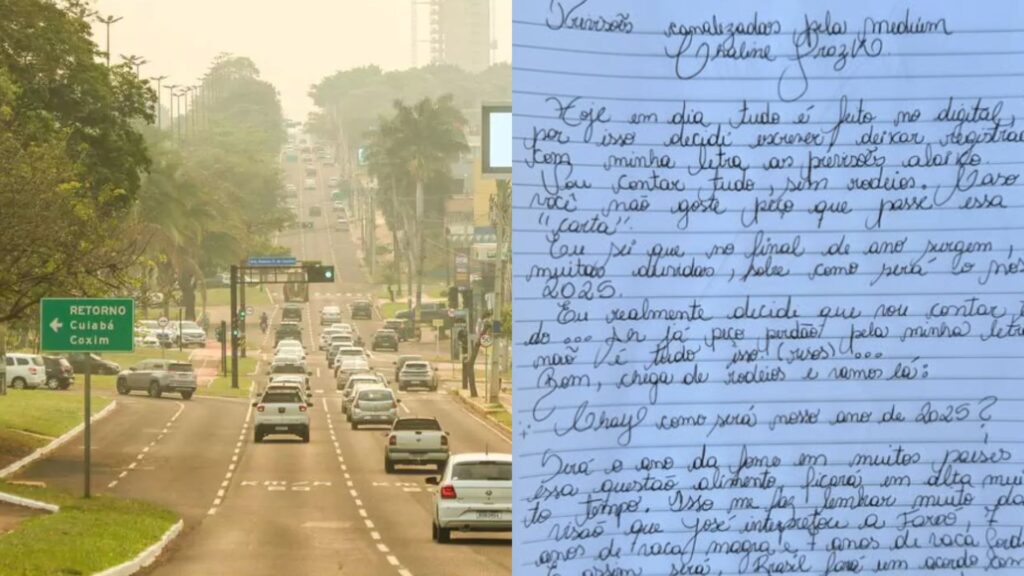 RETORNO
Cuiabá
Coxim
Previsões canalizadas pela médium
Chaline Grazik
Hoje em dia tudo é feito no digital,
por isso decidi escrever, deixar registrado
com minha letra as previsões abaixo.
Vou contar tudo, sem rodeios. Caso
você não goste peço que passe essa
"carta".
Eu sei que no final de ano surgem,
muitas duvidas, sobre como será o nosso
2025.
Eu realmente decide que vou contar t
do ... Ler já peço perdão pela minha letra
não é tudo isso (risos)...
Bom, chega de rodeios e vamos lá:
Chay! como será nosso ano de 2025?
Será o ano da fome em muitos países
essa questão alimento, ficará em alta mui
to tempo. Isso me faz lembrar muito da
visão que José interpretou a Faraó, 7
anos de vaca magra e 7 anos de vaca gorda
E assim será, Brasil fará um acordo com